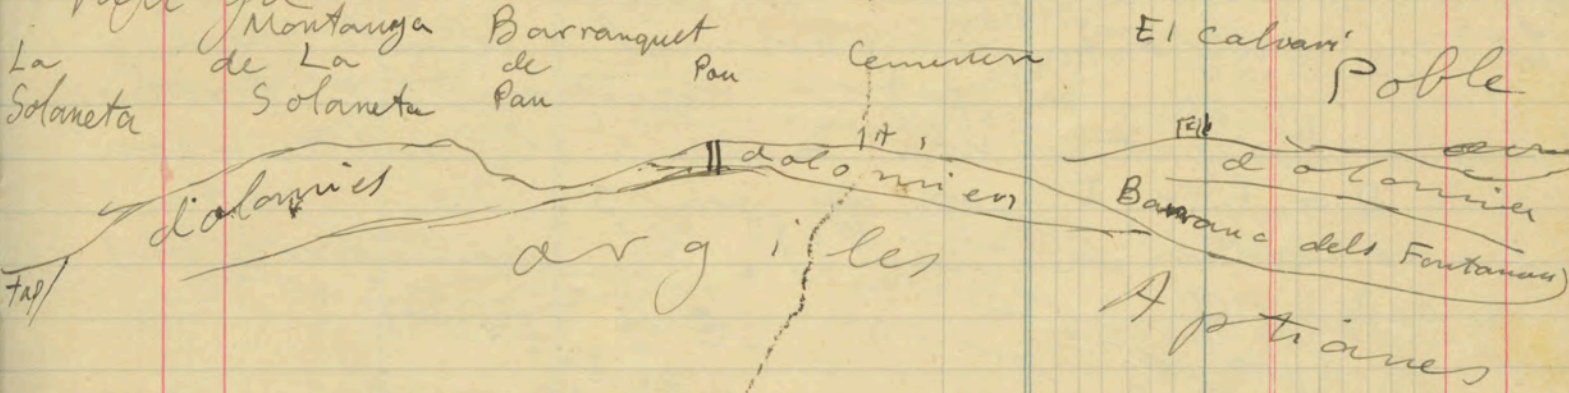 La
Solaneta
Montanya
de La
Solaneta
Barranquet
de
Pau
Pou
Cementeri
El Calvari
Poble
dolomies
dolomies
dolomies
Barranc dels Fontanars
argiles
Aptianes
tap